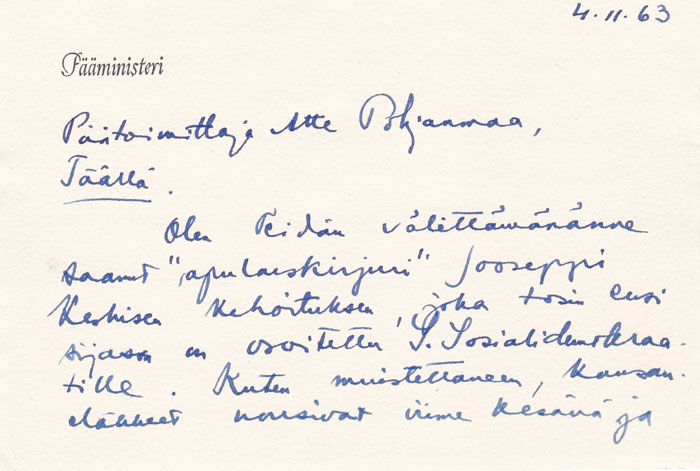 4.11.63
Pääministeri
Päätoimittaja Atte Pohjanmaa,
Täällä.
Olen Teidän välittämänänne
saanut "apulaiskirjuri" Jooseppi
Keskisen kehoituksen, joka tosin ensi
sijassa on osoitettu S. Sosialidemokraa-
tille. Kuten muistettaneen, kansan-
eläkkeet nousivat viime kesänä ja